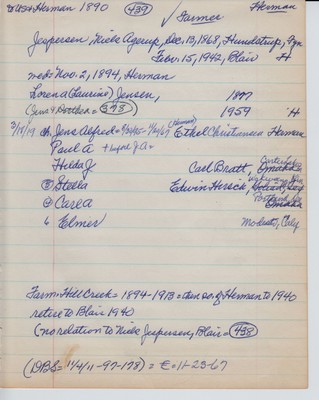 to USA + Herman 1890 (439) Herman
✓ Farmer
Jespersen, Niels Agerup, Dec. 13, 1868, Hundstrup, Fyn
Febr. 15, 1942, Blair H
med: Nov. 2, 1894, Herman
Lorena (Laurine) Jensen, 1877
(Jens + Dorthea = 398) 1959 H
3/14/19 ch, Jens Alfred = (Herman) Ethel Christiansen Herman
Paul A + Lynel J. C.
Hilda J. Carl Bratt, Omaha
⑤ Stella Edwin Hersick,
④ Carla Omaha
6 Elmer Modesto, Caly
Farm: Hill Creek = 1894-1913 = then so. of Herman to 1940
retire to Blair 1940
(no relation to Niels Jespersen, Blair = (438)
(DBS = 11/4/11-97-178) = E = 11-23-67